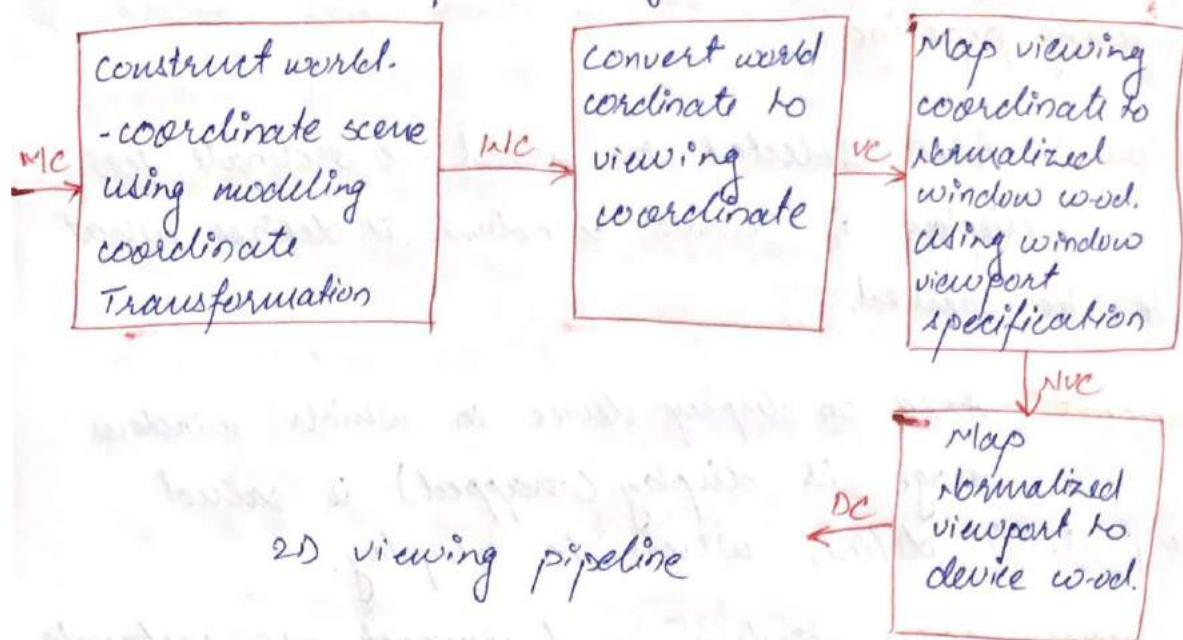 MC
construct world-
-coordinate scene
using modeling
coordinate
Transformation
WC
Convert world
cordinate to
viewing
coordinate
VC
Map viewing
coordinate to
Normalized
window co-od.
using window
viewport
specification
NVC
Map
Normalized
viewport to
device co-od.
DC
2D viewing pipeline